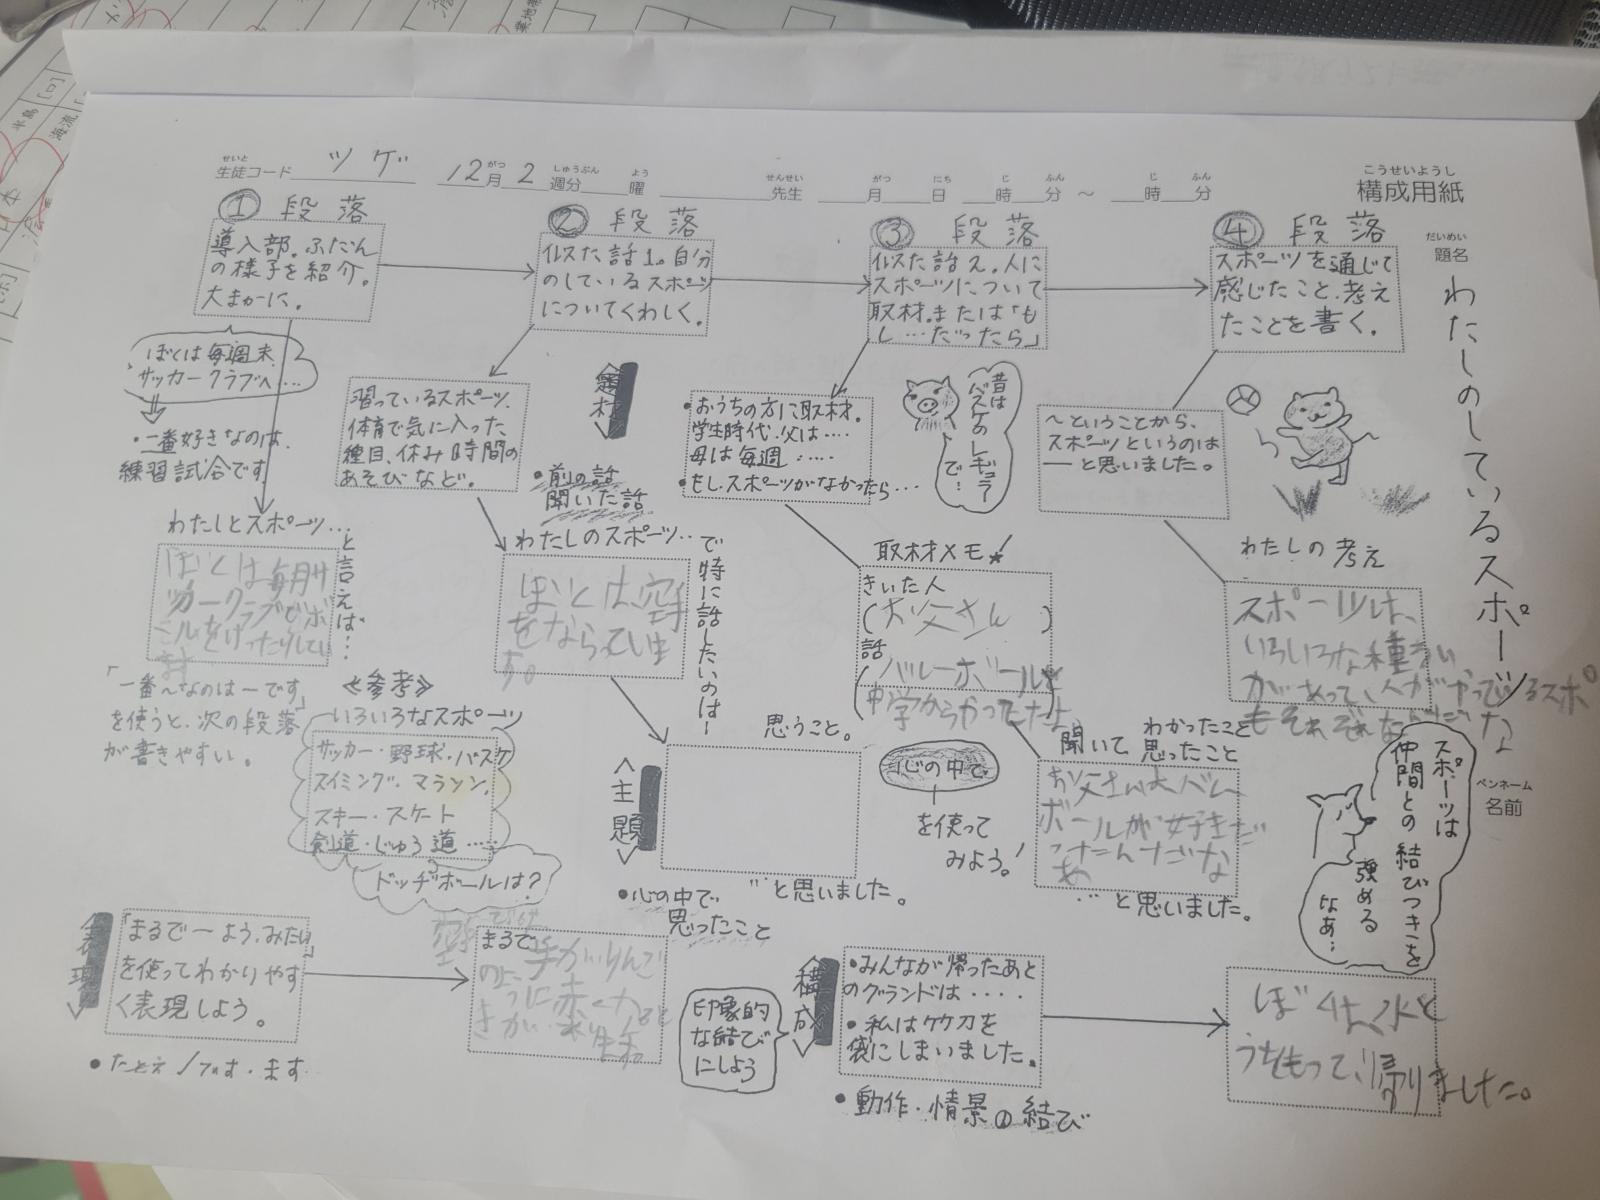 せいと
生徒コード ツゲ
12月2週分 曜
がつ しゅうぶん よう
せんせい がつ にち じ ふん じ ふん
先生 月 日 時 分 ～ 時 分
こうせいようし
構成用紙
だいめい
題名
わたしのしているスポーツ
ペンネーム
名前
① 段落
導入部。ふだん
の様子を紹介。
大まかに。
ぼくは毎週末、
サッカークラブへ…
・一番好きなのは、
練習試合です
わたしとスポーツ…
と言えば…
ぼくは毎月サ
ッカークラブでボ
ールをけったりしてい
ます
「一番～なのは－です」
を使うと、次の段落
が書きやすい。
≪参考≫
いろいろなスポーツ
サッカー・野球・バスケ
スイミング・マラソン、
スキー・スケート
剣道・じゅう道……
ドッヂボールは？
② 段落
似た話1。自分
のしているスポーツ
についてくわしく。
習っているスポーツ、
体育で気に入った
種目、休み時間の
あそびなど。
＜題材＞
・前の話
聞いた話
わたしのスポーツ‥
で特に話したいのは～
ぼくは、空手
をならっていま
す。
＜主題＞
思うこと。
…と思いました。
・心の中で
思ったこと
③ 段落
似た話え。人に
スポーツについて
取材。または「も
し…だったら」
・おうちの方に取材。
学生時代、父は‥‥
母は毎週‥‥
・もし、スポーツがなかったら…
昔は
バスケのレギュラー
で…
取材メモ
きいた人
(お父さん)
話
(バレーボールを
中学からやってたよ
心の中で
を使って
みよう!
聞いて わかったこと
思ったこと
お父さんは、バレー
ボールが好きだ
ったんだな
あ
…と思いました。
④ 段落
スポーツを通じて
感じたこと、考え
たことを書く。
～ということから、
スポーツというのは
―と思いました。
わたしの考え
スポーツは、
いろいろな種るい
があって、人がやっているスポーツ
もそれぞれなんだな
スポーツは
仲間との結びつきを
強める
なあ…
＜表現＞
「まるで～よう、みたい」
を使ってわかりやす
く表現しよう。
・たとえ
まるで
印象的
な結び
にしよう
＜構成＞
・みんなが帰ったあと
のグランドは‥‥
・私は竹刀を
袋にしまいました。
・動作・情景の結び
ぼくは、水と
うをもって、帰りました。